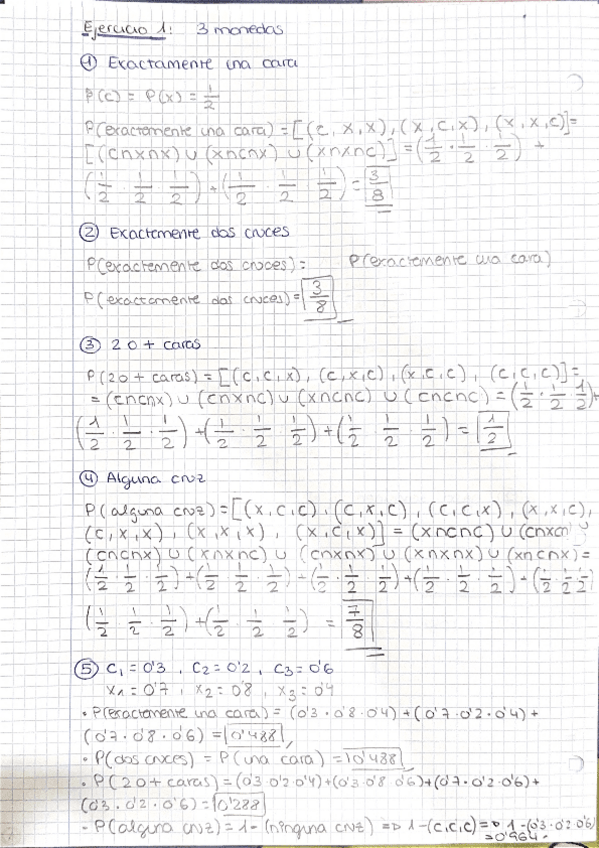 Ejercicio 1: 3 monedas
① Exactamente una cara
P(C) = P(X) = 1/2
P(exactamente una cara) = [(C, X, X), (X, C, X), (X, X, C)] =
[(C∩X∩X) ∪ (X∩C∩X) ∪ (X∩X∩C)] = (1/2 · 1/2 · 1/2) +
(1/2 · 1/2 · 1/2) + (1/2 · 1/2 · 1/2) = 3/8
② Exactamente dos cruces
P(exactamente dos cruces) = P(exactamente una cara)
P(exactamente dos cruces) = 3/8
③ 2 o + caras
P(2 o + caras) = [(C, C, X), (C, X, C), (X, C, C), (C, C, C)] =
= (C∩C∩X) ∪ (C∩X∩C) ∪ (X∩C∩C) ∪ (C∩C∩C) = (1/2 · 1/2 · 1/2) +
(1/2 · 1/2 · 1/2) + (1/2 · 1/2 · 1/2) + (1/2 · 1/2 · 1/2) = 1/2
④ Alguna cruz
P(alguna cruz) = [(X, C, C), (C, X, C), (C, C, X), (X, X, C),
(C, X, X), (X, X, X), (X, C, X)] = (X∩C∩C) ∪ (C∩X∩C) ∪
(C∩C∩X) ∪ (X∩X∩C) ∪ (C∩X∩X) ∪ (X∩X∩X) ∪ (X∩C∩X) =
(1/2 · 1/2 · 1/2) + (1/2 · 1/2 · 1/2) + (1/2 · 1/2 · 1/2) + (1/2 · 1/2 · 1/2) + (1/2 · 1/2 · 1/2)
(1/2 · 1/2 · 1/2) + (1/2 · 1/2 · 1/2) = 7/8
⑤ C₁ = 0'3, C₂ = 0'2, C₃ = 0'6
X₁ = 0'7, X₂ = 0'8, X₃ = 0'4
· P(exactamente una cara) = (0'3 · 0'8 · 0'4) + (0'7 · 0'2 · 0'4) +
(0'7 · 0'8 · 0'6) = 0'488
· P(dos cruces) = P(una cara) = 0'488
· P(2 o + caras) = (0'3 · 0'2 · 0'4) + (0'3 · 0'8 · 0'6) + (0'7 · 0'2 · 0'6) +
(0'3 · 0'2 · 0'6) = 0'288
- P(alguna cruz) = 1 - (ninguna cruz) => 1 - (C, C, C) => 1 - (0'3 · 0'2 · 0'6)
= 0'964.